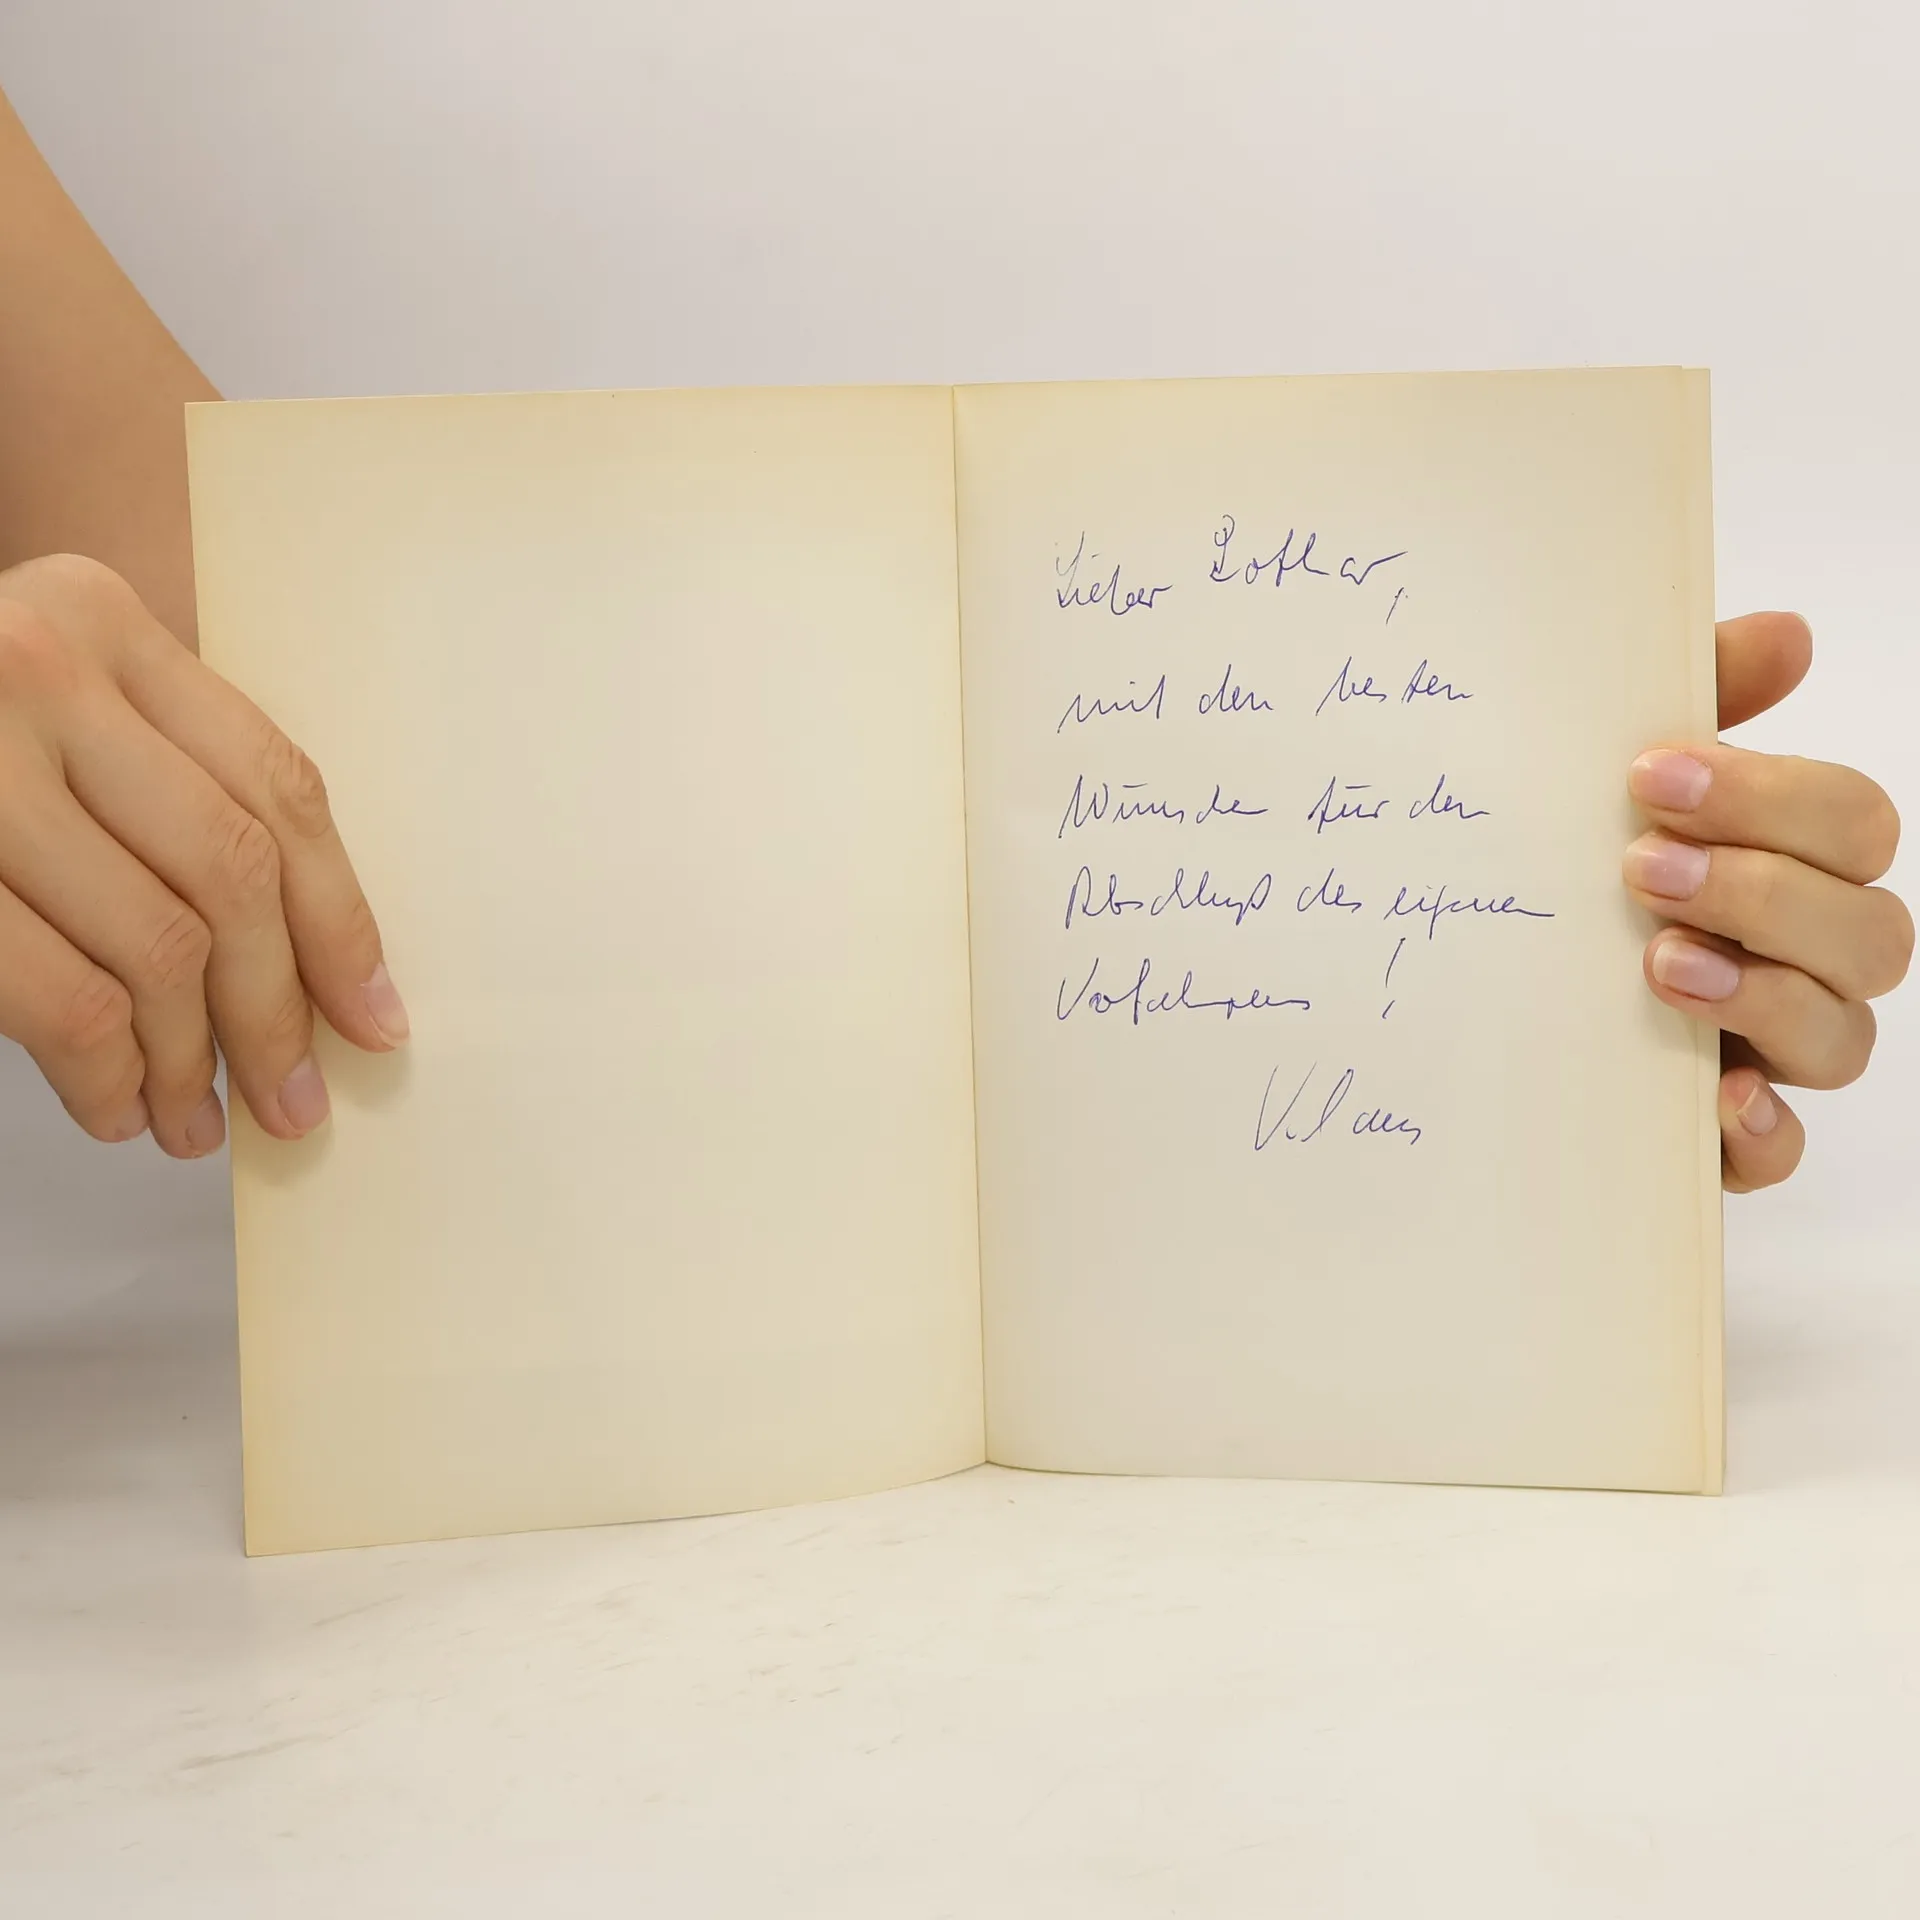 Lieber Lothar,
mit den besten
Wünschen für den
Abschluß des eigenen
Verfahrens!
Klaus